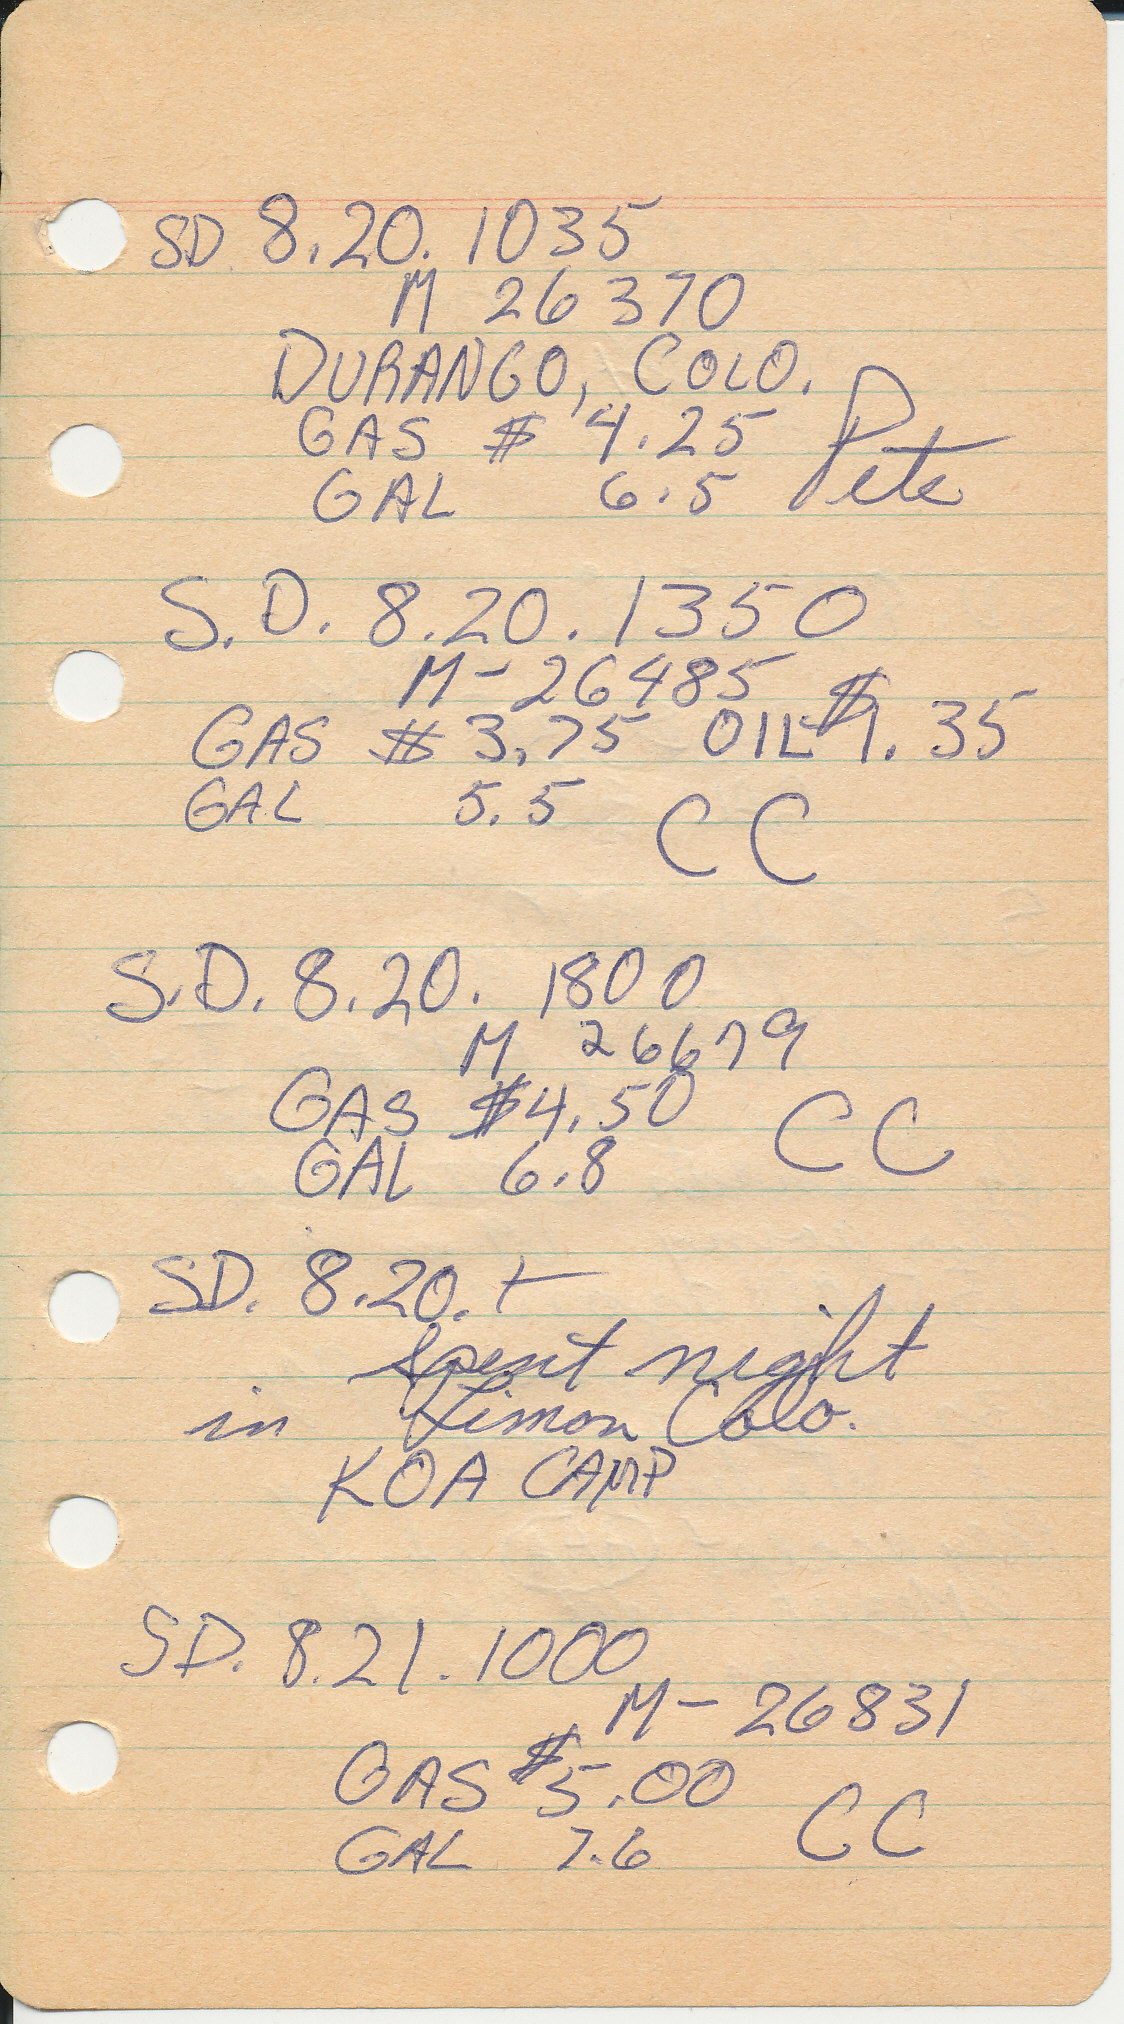 SD 8.20. 1035
M 26370
DURANGO, COLO.
GAS $ 4.25 Pete
GAL 6.5
S.D. 8.20. 1350
M-26485
GAS $ 3.75 OIL $1.35
GAL 5.5 CC
S.D. 8.20. 1800
M 26679
GAS $4.50 CC
GAL 6.8
SD. 8.20. +
Spent night
in Limon Colo.
KOA CAMP
SD. 8.21. 1000
M-26831
GAS $5.00 CC
GAL 7.6